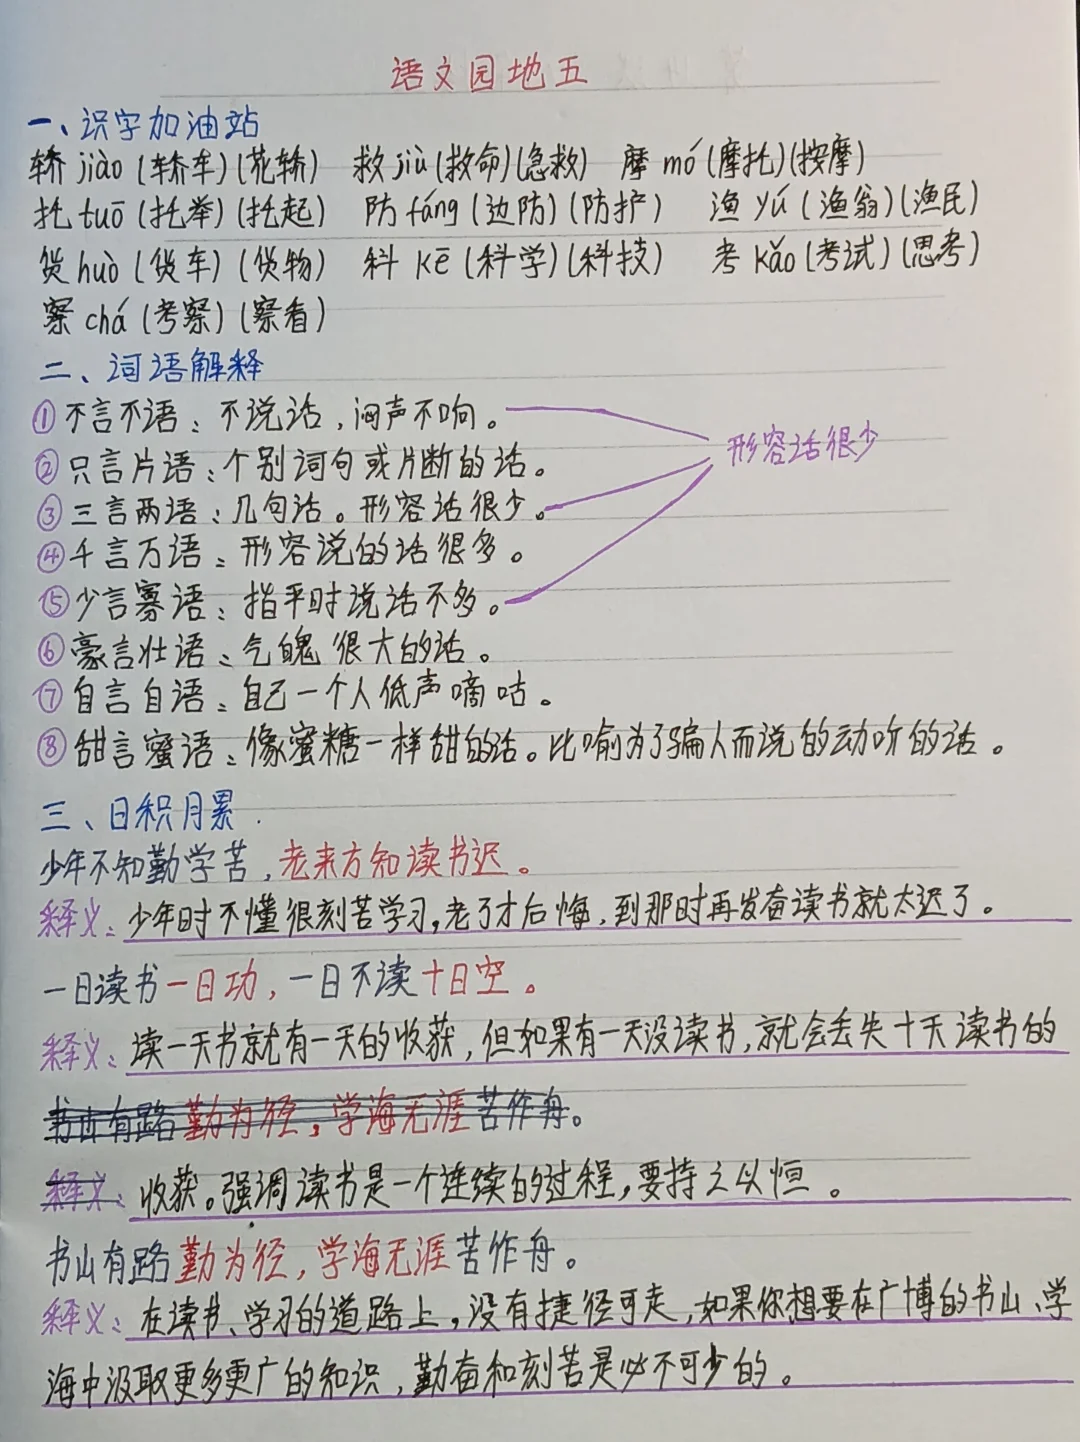 语文园地五
一、识字加油站
轿 jiào (轿车)(花轿) 救 jiù (救命)(急救) 摩 mó (摩托)(按摩)
托 tuō (托举)(托起) 防 fáng (边防)(防护) 渔 yú (渔翁)(渔民)
货 huò (货车)(货物) 科 kē (科学)(科技) 考 kǎo (考试)(思考)
察 chá (考察)(察看)
二、词语解释
①不言不语:不说话,闷声不响。
形容话很少
②只言片语:个别词句或片断的话。
③三言两语:几句话。形容话很少。
④千言万语:形容说的话很多。
⑤少言寡语:指平时说话不多。
⑥豪言壮语:气魄很大的话。
⑦自言自语:自己一个人低声嘀咕。
⑧甜言蜜语:像蜜糖一样甜的话。比喻为了骗人而说的动听的话。
三、日积月累.
少年不知勤学苦,老来方知读书迟。
释义:少年时不懂很刻苦学习,老了才后悔,到那时再发奋读书就太迟了。
一日读书一日功,一日不读十日空。
释义:读一天书就有一天的收获,但如果有一天没读书,就会丢失十天读书的
书山有路勤为径,学海无涯苦作舟。
释义:收获。强调读书是一个连续的过程,要持之以恒。
书山有路勤为径,学海无涯苦作舟。
释义:在读书、学习的道路上,没有捷径可走,如果你想要在广博的书山、学
海中汲取更多更广的知识,勤奋和刻苦是必不可少的。